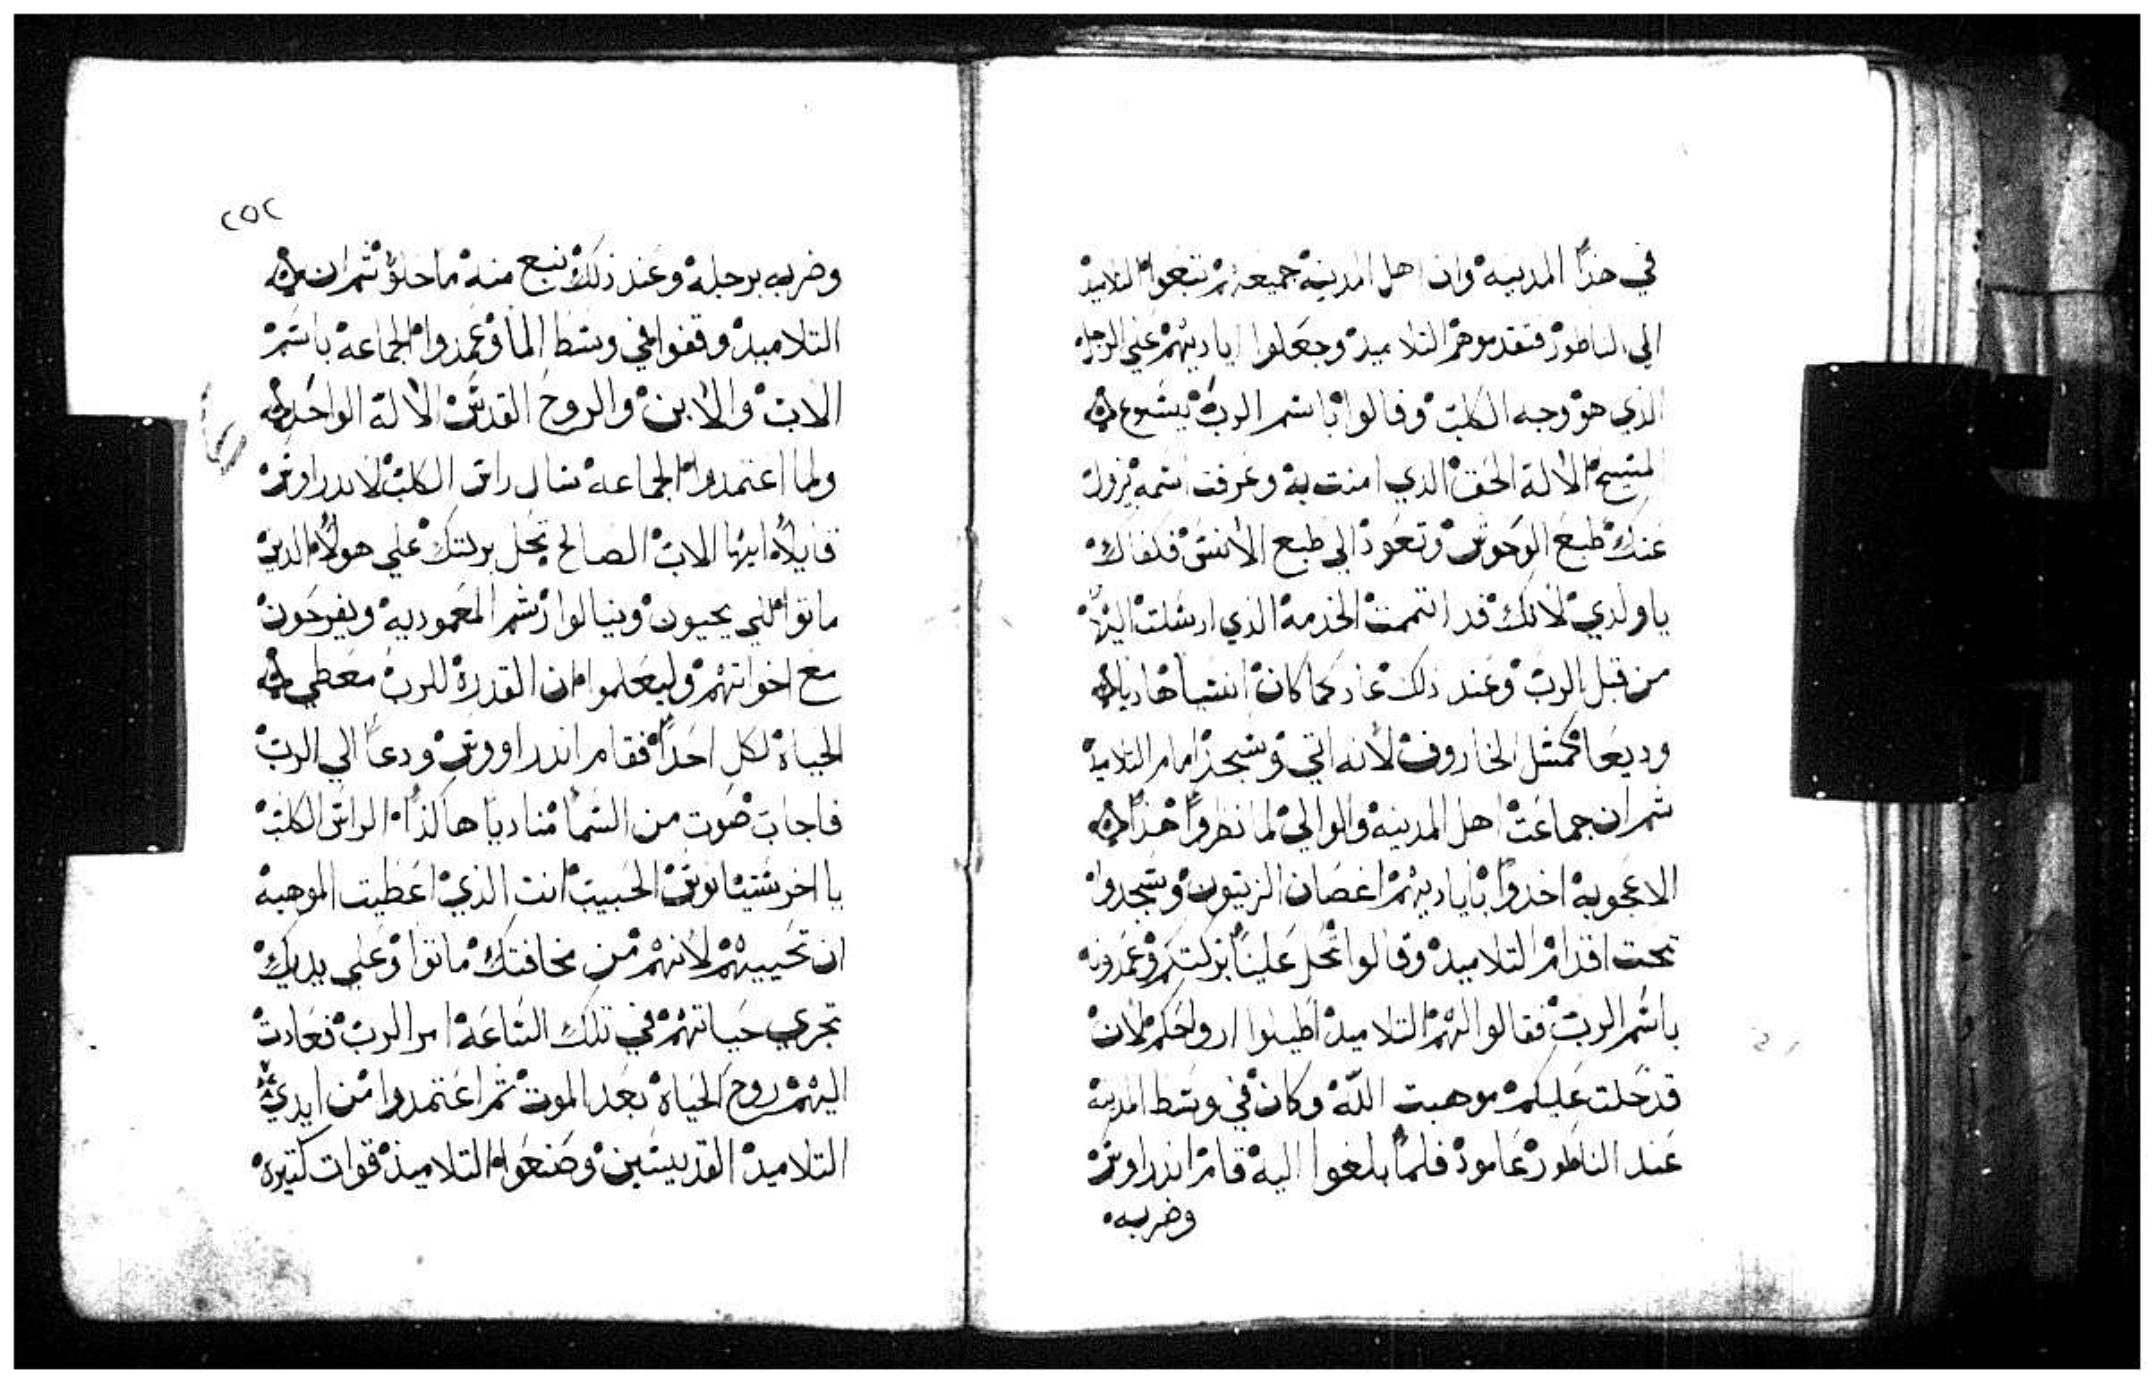 في هذا المدينه وان اهل المدينه جميعهم تبعوا التلاميذ
الي الناطور فتقدموهم التلاميذ وجعلوا اياديهم علي الرجل
الذي هو وجه الكلب وقالوا باسم الرب يسوع
المسيح الاله الحق الذي امنت به وعرفت اسمه يزول
عنك طبع الوحوش وتعود الي طبع الانس فكفاك
يا ولدي لانك قد اتممت الخدمه الذي ارسلت اليها
من قبل الرب وعند ذلك عاد كما كان انسبا هاديا
وديعا كمثل الخاروف لانه اتي وسجد امام التلاميذ
ثم ان جماعت اهل المدينه والوالي لما نظروا هذا
الاعجوبه اخدوا باياديهم اغصان الزيتون وسجدوا
تحت اقدام التلاميد وقالوا تحل علينا بركتكم وعمدونا
باسم الرب فقالوا لهم التلاميد اطيبوا ارواحكم لان
قد حلت عليكم موهبت الله وكان في وسط المدينه
عند الناطور عامود فلما بلغوا اليه قام اندراوس
وضربه
٢٥٢
وضربه برجله وعند ذلك نبع منه ما حلو ثم ان
التلاميد وقفوا في وسط الما وعمدوا الجماعه باسم
الاب والابن والروح القدس الاله الواحد
ولما اعتمدوا الجماعه سال راس الكلب لاندراوس
قايلا ايها الاب الصالح تحل بركتك علي هولا الدين
ماتوا لكي يحيون وينالوا رشم المعموديه ويفرحون
مع اخواتهم وليعلموا ان القدره للرب معطي
الحياه لكل احدا فقام اندراووس ودعا الي الرب
فاجاب صوت من السما مناديا هاكذا الراس الكلب
يا اخرستيانوس الحبيب انت الذي اعطيت الموهبه
ان تحييهم لانهم من مخافتك ماتوا وعلي يديك
تجري حياتهم في تلك الساعه امر الرب فعادت
اليهم روح الحياه بعد الموت ثم اعتمدوا من ايدي
التلاميد القديسين وصنعوا التلاميذ قوات كتيره